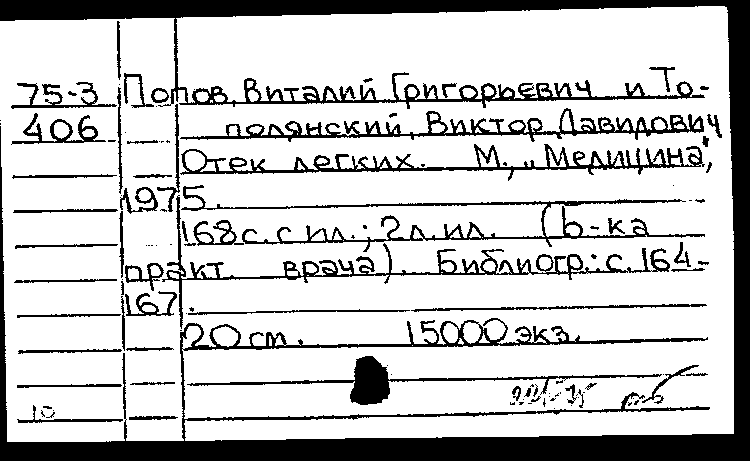 75-3 Попов, Виталий Григорьевич и То-
406 полянский, Виктор Давидович
Отек легких. М., „Медицина",
1975.
168с. с ил.; 2л. ил. (Б-ка
практ. врача). Библиогр.: с. 164-
167.
20 см. 15000 экз.
10